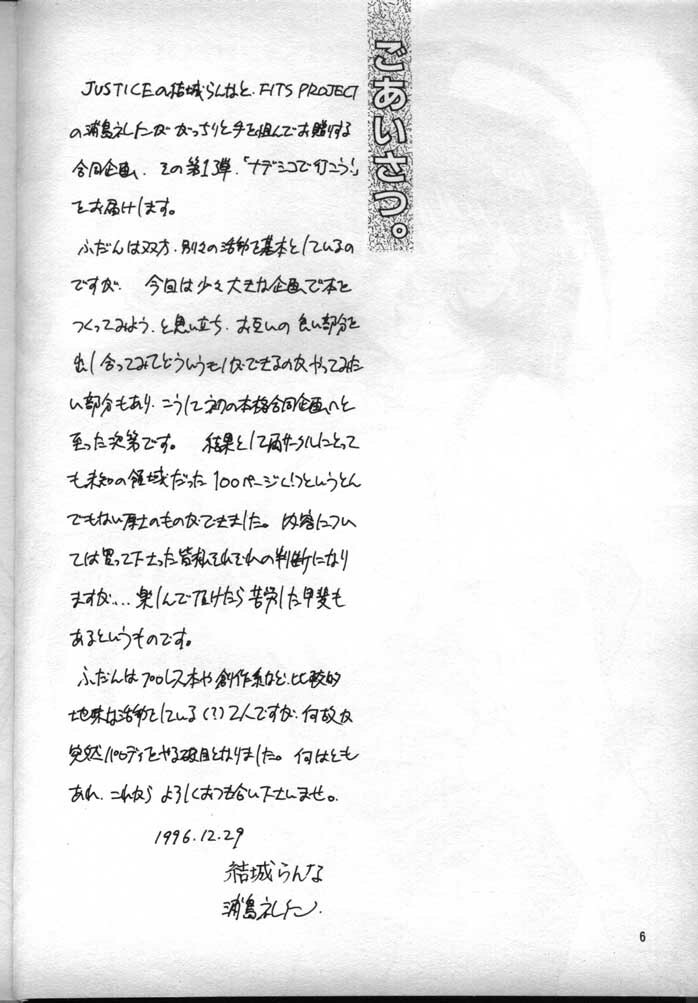 ごあいさつ。
JUSTICEの結城らんなと、FITS PROJECT
の浦島礼仁がガッちりと手を組んでお贈りする
合同企画、その第1弾、「ナデシコで行こう!」
をお届けします。
ふだんは双方、別々の活動を基本としているの
ですが、今回は少々大きな企画で本を
つくってみよう、と思い立ち、お互いの良い部分を
出し合ってみてどういうものができるのかやってみた
い部分もあり、こうして初の本格合同企画へと
至った次第です。結果として両サークルにとって
も未知の領域だった100ページ以上というとん
でもない厚さのものができました。内容につい
ては買って下さった皆様それぞれの判断になり
ますが…楽しんで頂けたら苦労した甲斐も
あるというものです。
ふだんはプロレス本や創作系など、比較的
地味な活動をしている(?)2人ですが、何故か
突然パロディをやる破目となりました。何はとも
あれ、これからよろしくおつき合い下さいませ。
1996.12.29
結城らんな
浦島
6